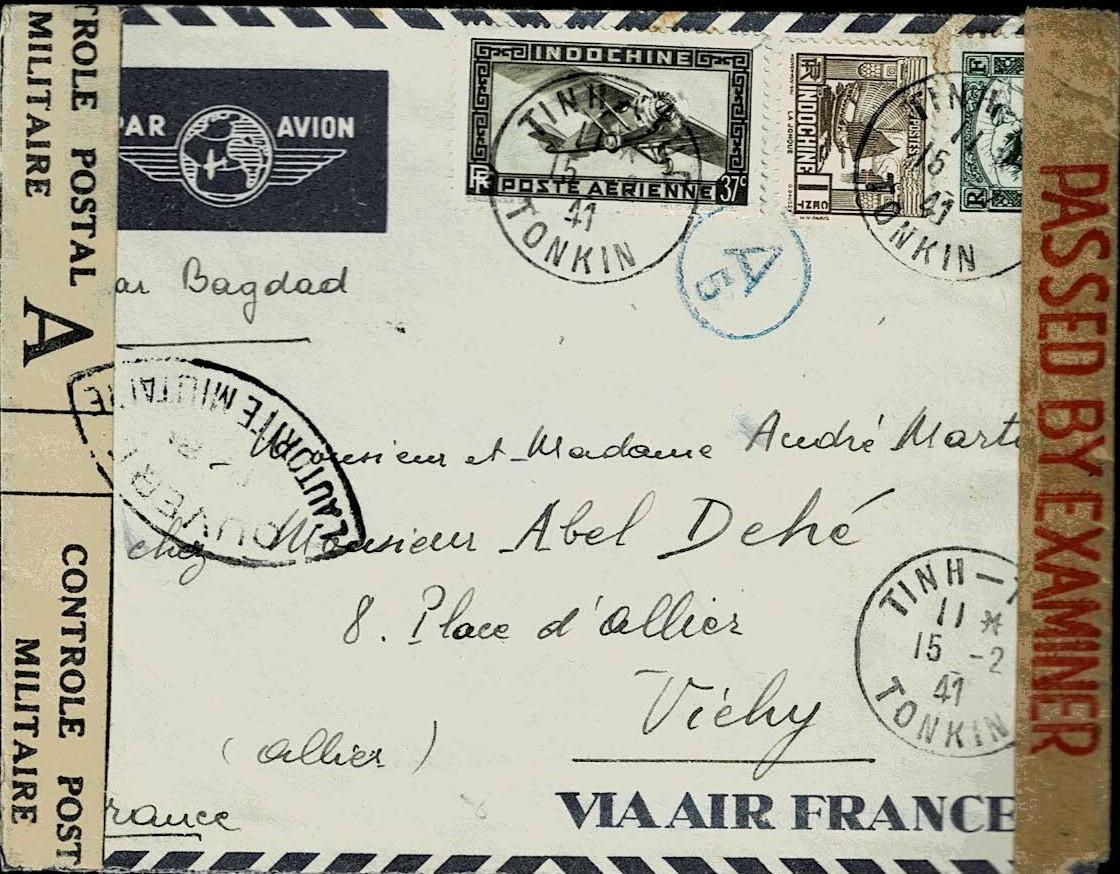 TROLE POSTAL
MILITAIRE
A
CONTROLE POST
MILITAIRE
PAR AVION
INDOCHINE
POSTE AÉRIENNE
RF
37c
TINH-
15
41
TONKIN
RF INDOCHINE
POSTES
LA JONQUE
1
CENT
TINH
15
41
TONKIN
RF
A
5
ar Bagdad
OUVERT
L'AUTORITÉ MILITAIRE
Monsieur et Madame André Mart
chez Monsieur Abel Dehé
8. Place d'allier
Vichy
(allier)
rance
TINH-T
11 *
15 -2
41
TONKIN
VIA AIR FRANCE
PASSED BY EXAMINER